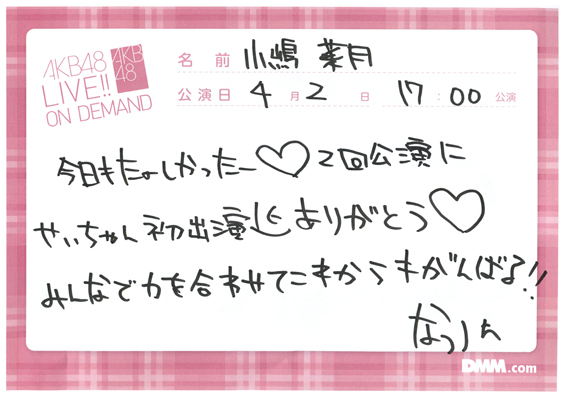 AKB48
LIVE!!
ON DEMAND
AKB
48
名前 小嶋 菜月
公演日 4月2日 17:00公演
今日もたのしかったー♡2回公演に
せいちゃん初出演 ありがとう♡
みんなで力を合わせてこれからもがんばる!!
なつ
DMM.com